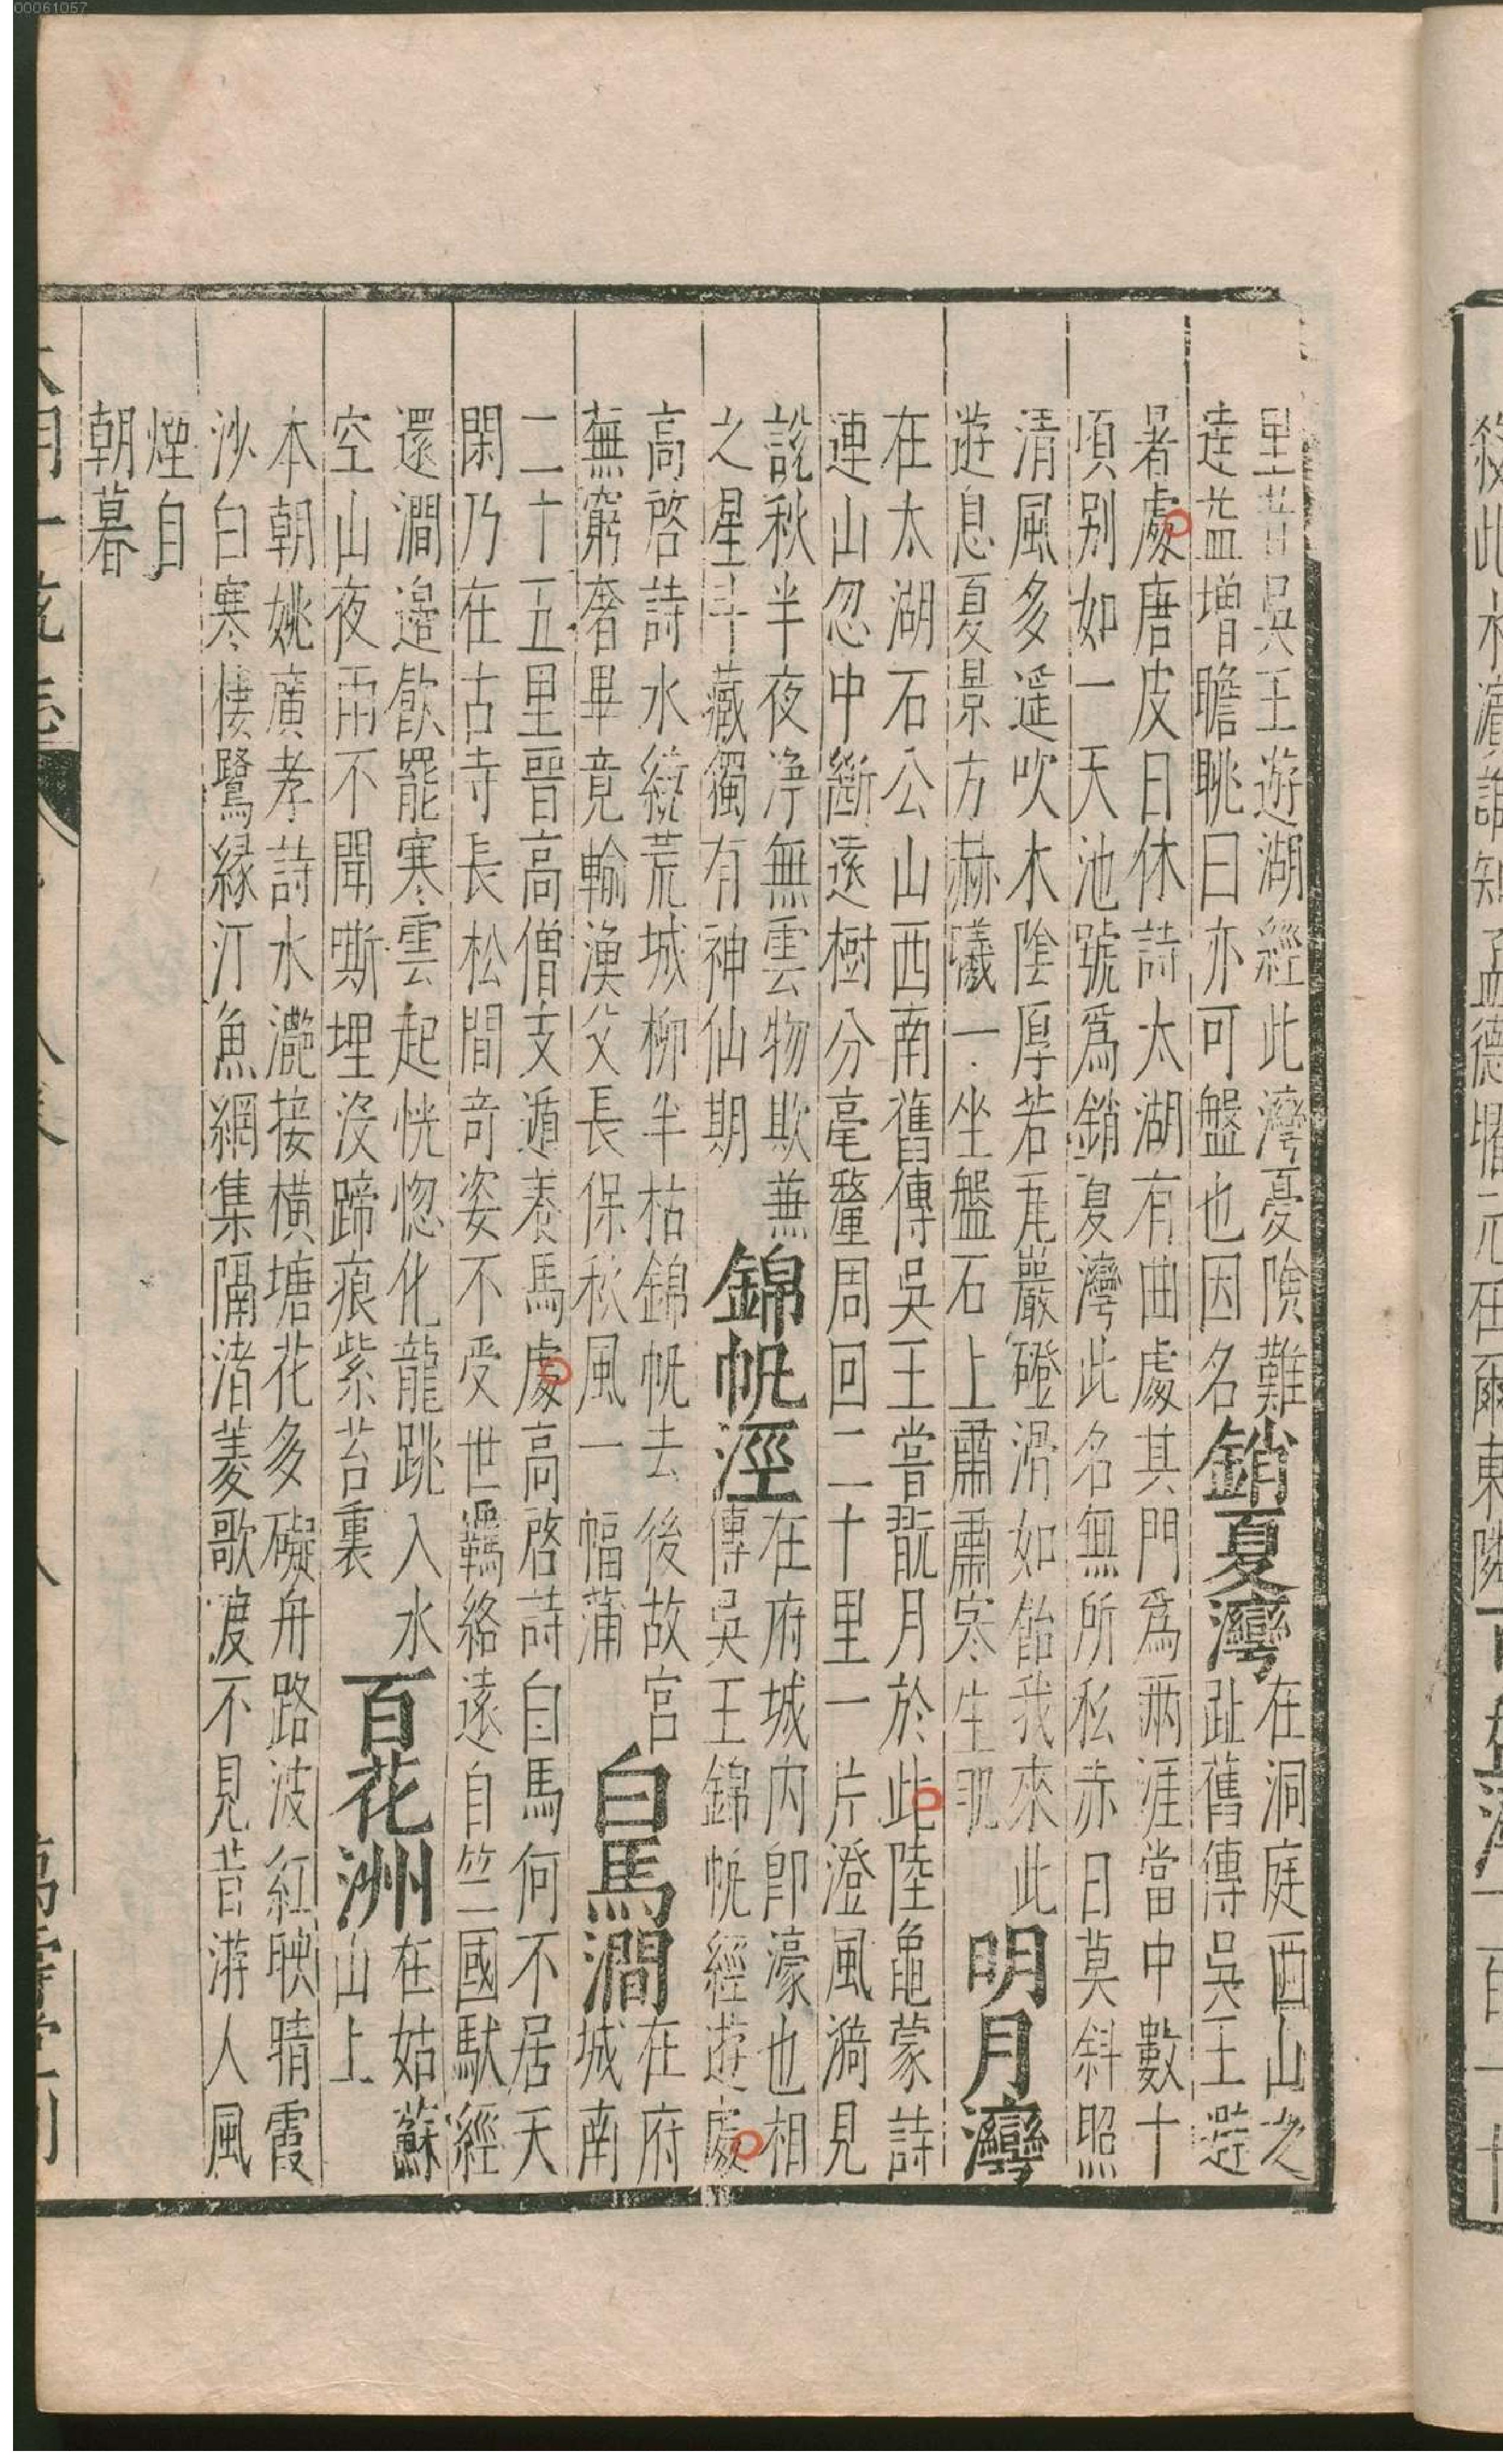 里昔吳王遊湖經此灣憂險難
達益增瞻眺曰亦可盤也因名
銷夏灣
在洞庭西山之
趾舊傳吳王避
暑處唐皮日休詩太湖有曲處其門爲兩涯當中數十
頃別如一天池號爲銷夏灣此名無所私赤日莫斜照
清風多遥吹木陰厚若瓦嚴磴滑如飴我來此
遊息夏景方赫曦一坐盤石上肅肅寒生肌
明月灣
在太湖石公山西南舊傳吳王嘗翫月於此陸龜蒙詩
連山忽中斷遠樹分毫釐周回二十里一片澄風漪見
說秋半夜淨無雲物欺兼
之星斗藏獨有神仙期
錦帆涇
在府城内即濠也相
傳吳王錦帆經遊處
高啓詩水繞荒城柳半枯錦帆去後故宮
蕪窮奢畢竟輸漁父長保秋風一幅蒲
白馬澗
在府
城南
二十五里晉高僧支遁養馬處高啓詩白馬何不居天
閑乃在古寺長松間奇姿不受世羈絡遠自竺國馱經
還澗邉飲罷寒雲起恍惚化龍跳入水
空山夜雨不聞嘶埋没蹄痕紫苔裏
百花洲
在姑蘇
山上
本朝姚廣孝詩水灔接橫塘花多礙舟路波紅映晴霞
沙白寒棲鷺緑汀魚網集隔渚菱歌渡不見昔游人風
煙自
朝暮
大明一統志
萬壽堂刊
00061057